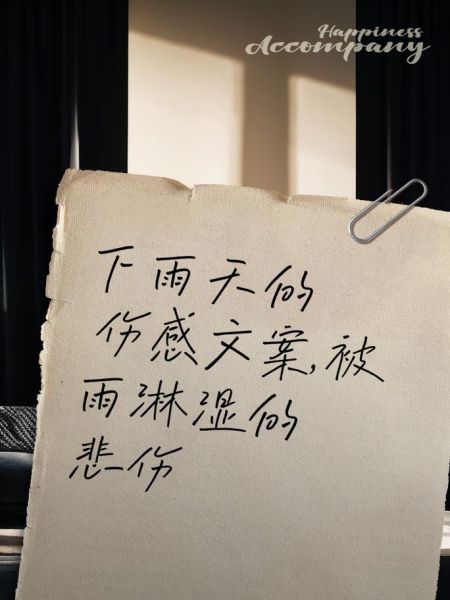 Happiness
Accompany
下雨天的
伤感文案,被
雨淋湿的
悲伤